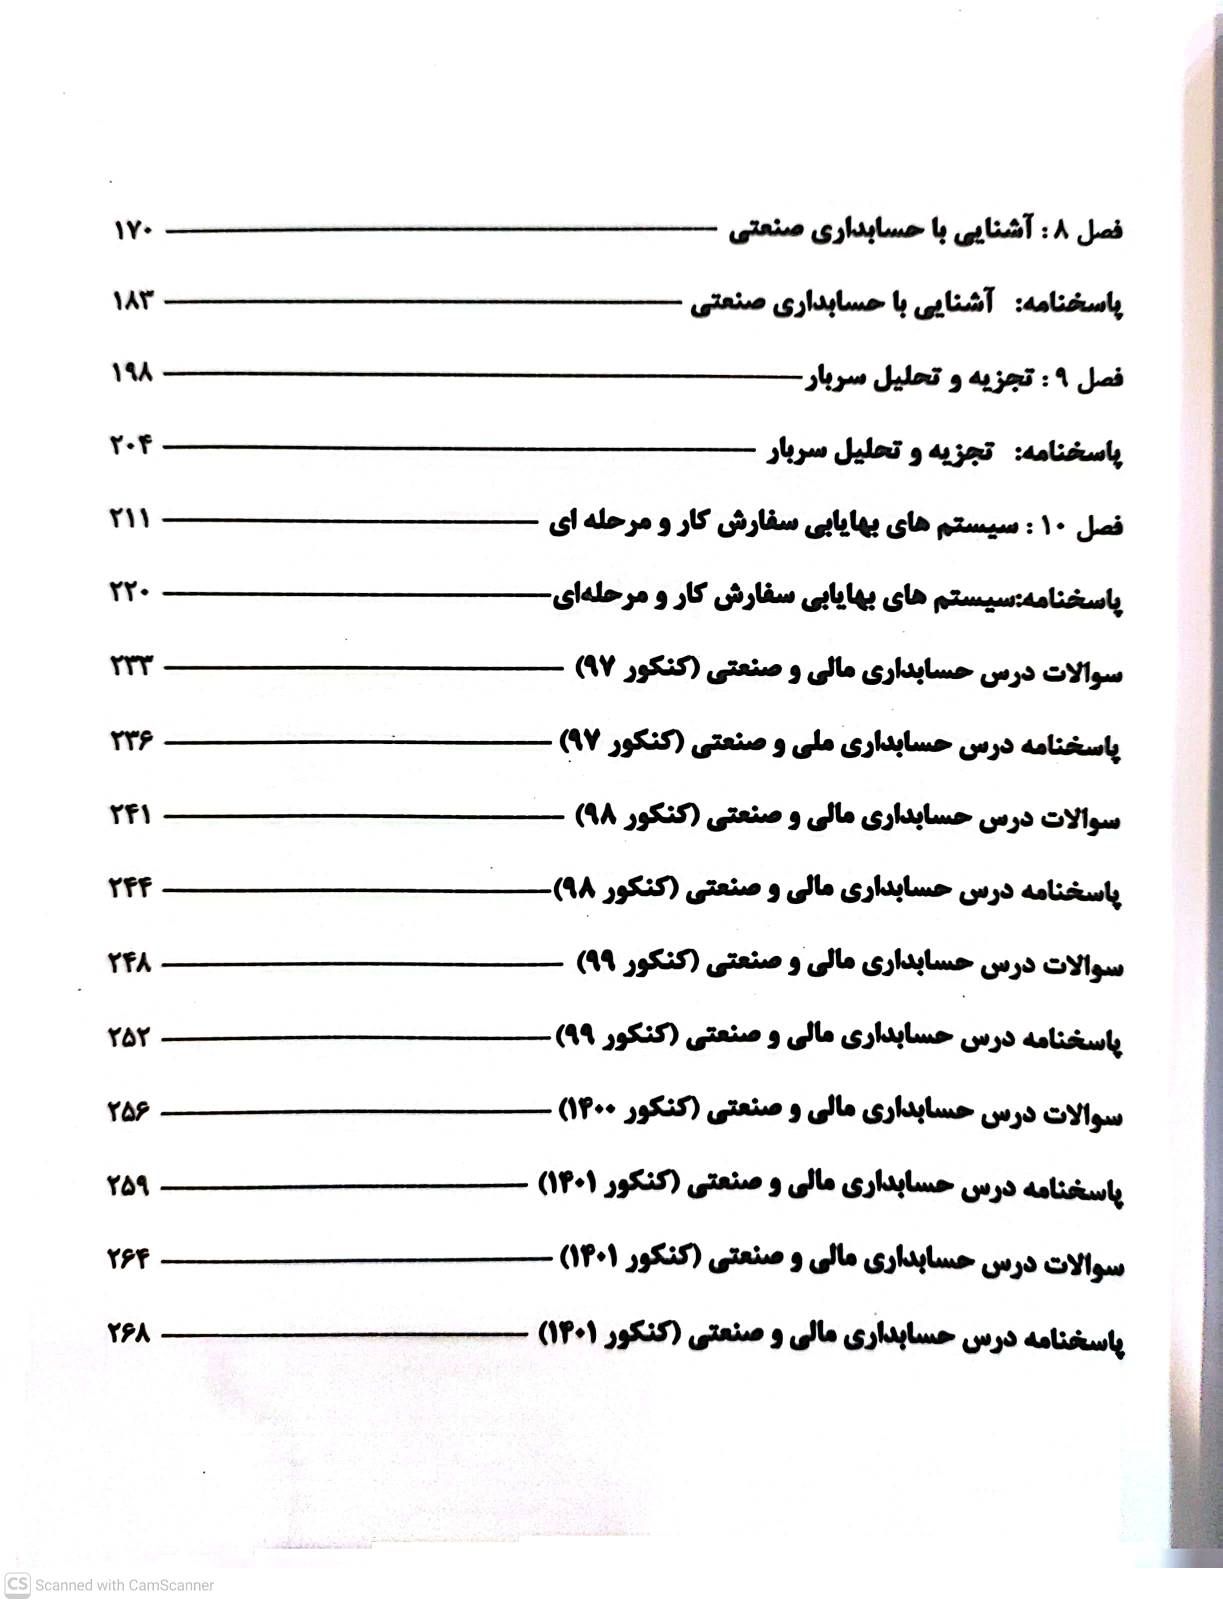 فصل ۸ : آشنایی با حسابداری صنعتی ۱۷۰
پاسخنامه: آشنایی با حسابداری صنعتی ۱۸۳
فصل ۹ : تجزیه و تحلیل سربار ۱۹۸
پاسخنامه: تجزیه و تحلیل سربار ۲۰۴
فصل ۱۰ : سیستم های بهایابی سفارش کار و مرحله ای ۲۱۱
پاسخنامه:سیستم های بهایابی سفارش کار و مرحله‌ای ۲۲۰
سوالات درس حسابداری مالی و صنعتی (کنکور ۹۷) ۲۳۳
پاسخنامه درس حسابداری ملی و صنعتی (کنکور ۹۷) ۲۳۶
سوالات درس حسابداری مالی و صنعتی (کنکور ۹۸) ۲۴۱
پاسخنامه درس حسابداری مالی و صنعتی (کنکور ۹۸) ۲۴۴
سوالات درس حسابداری مالی و صنعتی (کنکور ۹۹) ۲۴۸
پاسخنامه درس حسابداری مالی و صنعتی (کنکور ۹۹) ۲۵۲
سوالات درس حسابداری مالی و صنعتی (کنکور ۱۴۰۰) ۲۵۶
پاسخنامه درس حسابداری مالی و صنعتی (کنکور ۱۴۰۱) ۲۵۹
سوالات درس حسابداری مالی و صنعتی (کنکور ۱۴۰۱) ۲۶۴
پاسخنامه درس حسابداری مالی و صنعتی (کنکور ۱۴۰۱) ۲۶۸
CS Scanned with CamScanner